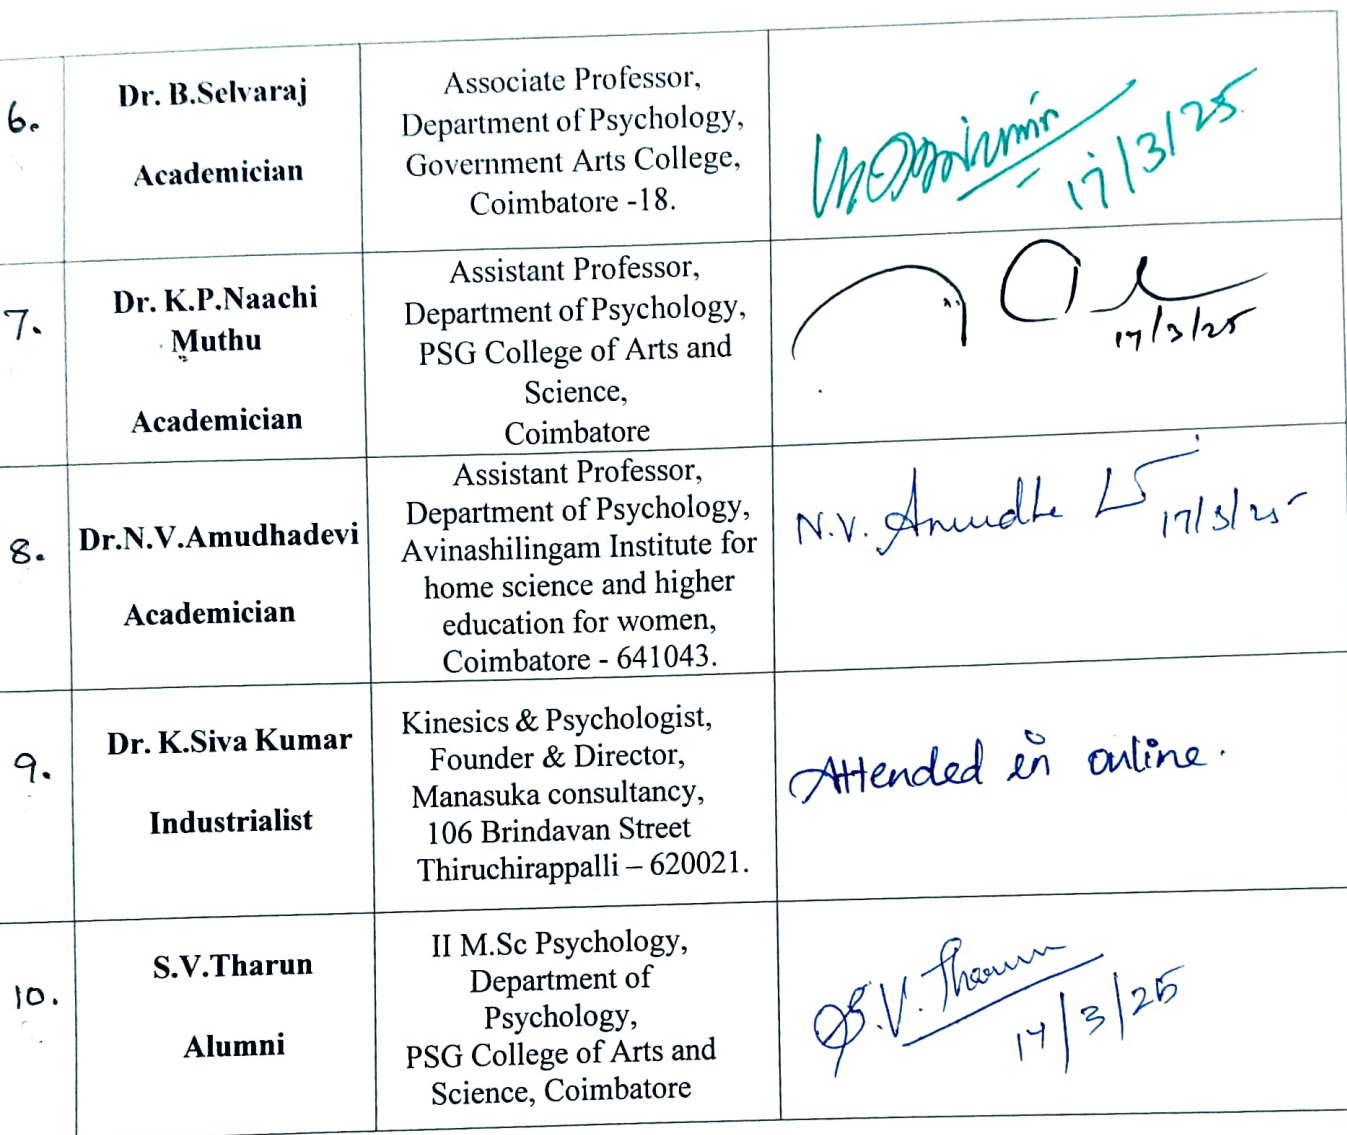 6.
Dr. B.Selvaraj
Academician
Associate Professor,
Department of Psychology,
Government Arts College,
Coimbatore -18.
17/3/25
7.
Dr. K.P.Naachi
Muthu
Academician
Assistant Professor,
Department of Psychology,
PSG College of Arts and
Science,
Coimbatore
17/3/25
8.
Dr.N.V.Amudhadevi
Academician
Assistant Professor,
Department of Psychology,
Avinashilingam Institute for
home science and higher
education for women,
Coimbatore - 641043.
N.V. Amudha 17/3/25
9.
Dr. K.Siva Kumar
Industrialist
Kinesics & Psychologist,
Founder & Director,
Manasuka consultancy,
106 Brindavan Street
Thiruchirappalli – 620021.
Attended in online.
10.
S.V.Tharun
Alumni
II M.Sc Psychology,
Department of
Psychology,
PSG College of Arts and
Science, Coimbatore
S.V. Tharun
17/3/25